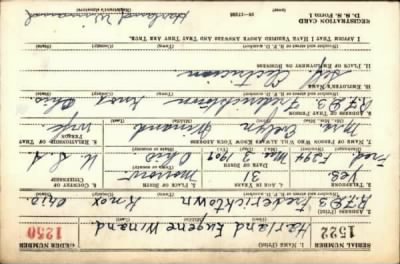 SERIAL NUMBER
1522
1. NAME (Print)
Harland Eugene Winand
ORDER NUMBER
1250
2. ADDRESS (Print)
R.F.D. 3 Fredericktown Knox Ohio.
3. TELEPHONE
Yes
4. AGE IN YEARS
31
5. PLACE OF BIRTH
6. COUNTRY OF CITIZENSHIP
Fred. F294
DATE OF BIRTH
Mar 2 1909
Ohio
U. S. A.
7. NAME OF PERSON WHO WILL ALWAYS KNOW YOUR ADDRESS
8. RELATIONSHIP OF THAT PERSON
Mrs. Evelyn Winand wife
9. ADDRESS OF THAT PERSON
R.F.D. 3 Fredericktown Knox Ohio
10. EMPLOYER'S NAME
Self Electrician
11. PLACE OF EMPLOYMENT OR BUSINESS
I AFFIRM THAT I HAVE VERIFIED ABOVE ANSWERS AND THAT THEY ARE TRUE.
REGISTRATION CARD
D. S. S. Form 1
16-17105
(Registrant's signature)